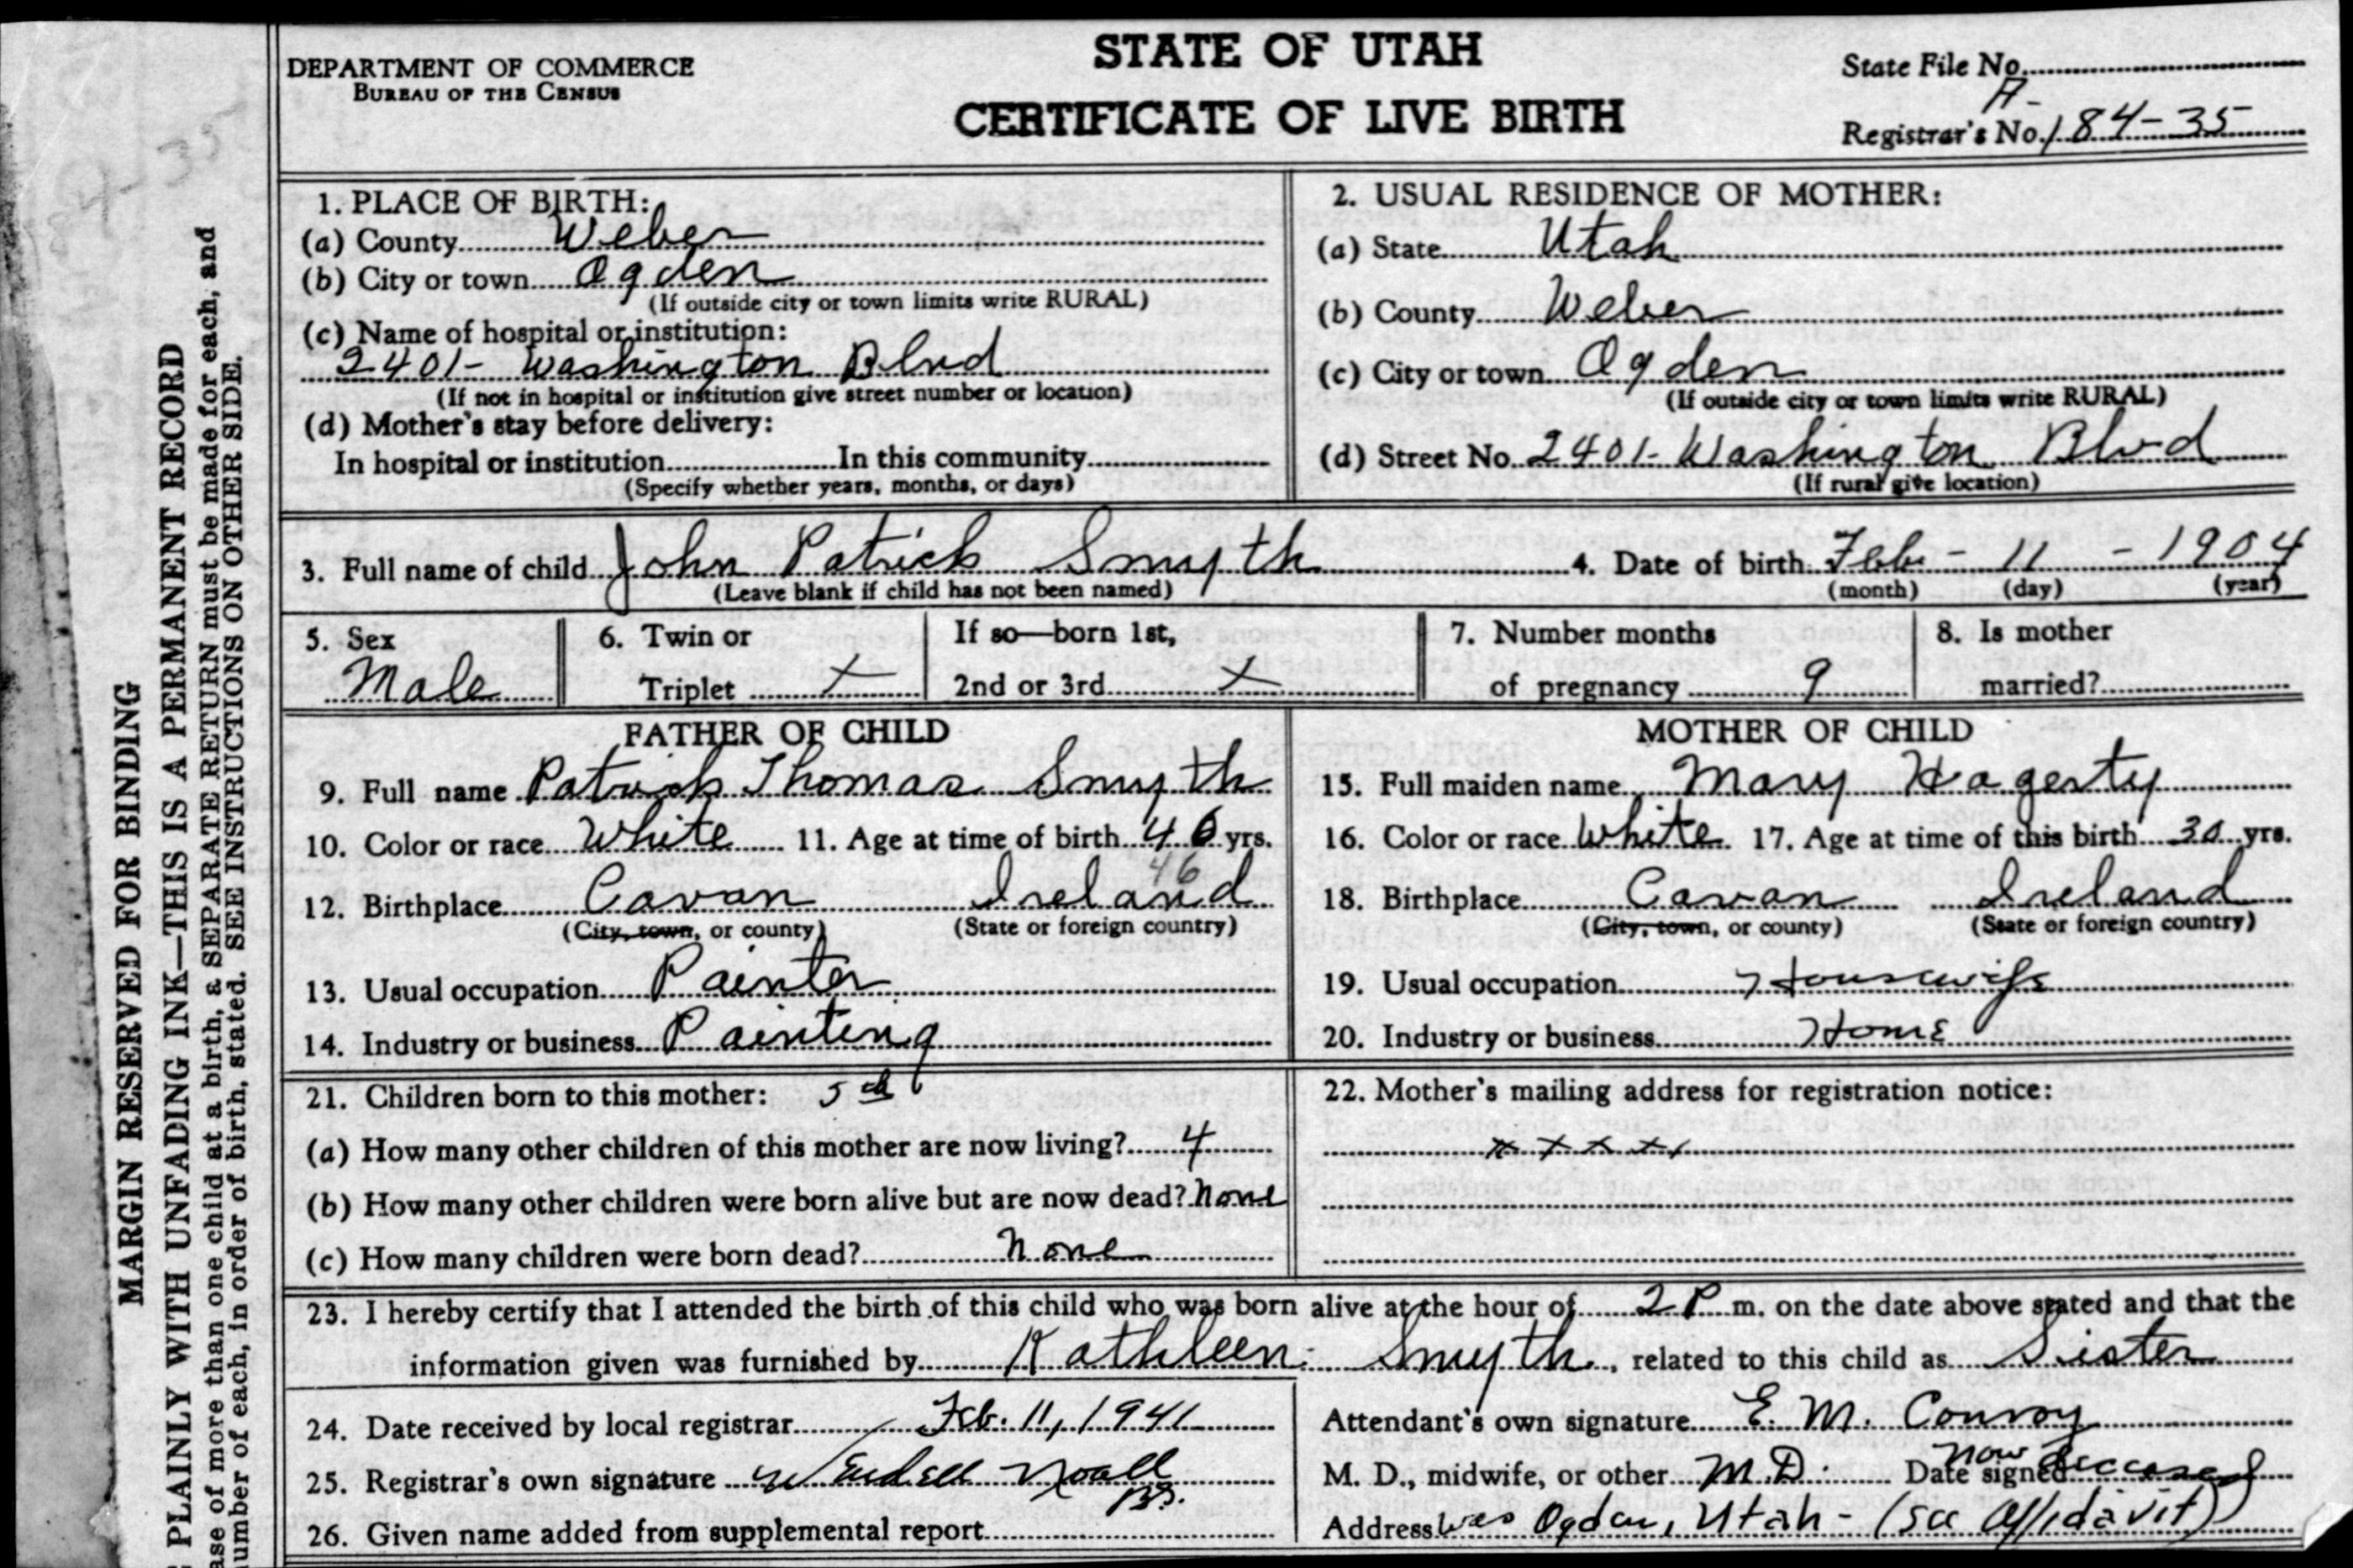 DEPARTMENT OF COMMERCE
BUREAU OF THE CENSUS
STATE OF UTAH
CERTIFICATE OF LIVE BIRTH
State File No.
A-
Registrar's No. 184-35
MARGIN RESERVED FOR BINDING
PLAINLY WITH UNFADING INK—THIS IS A PERMANENT RECORD
ase of more than one child at a birth, a SEPARATE RETURN must be made for each, and
number of each, in order of birth, stated. SEE INSTRUCTIONS ON OTHER SIDE.
1. PLACE OF BIRTH:
(a) County Weber
(b) City or town Ogden
(If outside city or town limits write RURAL)
(c) Name of hospital or institution:
2401- Washington Blvd
(If not in hospital or institution give street number or location)
(d) Mother's stay before delivery:
In hospital or institution In this community
(Specify whether years, months, or days)
2. USUAL RESIDENCE OF MOTHER:
(a) State Utah
(b) County Weber
(c) City or town Ogden
(If outside city or town limits write RURAL)
(d) Street No. 2401- Washington Blvd
(If rural give location)
3. Full name of child John Patrick Smyth 4. Date of birth Feb - 11 - 1904
(Leave blank if child has not been named) (month) (day) (year)
5. Sex 6. Twin or If so—born 1st, 7. Number months 8. Is mother
Male Triplet x 2nd or 3rd x of pregnancy 9 married?
FATHER OF CHILD
9. Full name Patrick Thomas Smyth
10. Color or race White 11. Age at time of birth 46 yrs.
46
12. Birthplace Cavan Ireland
(City, town, or county) (State or foreign country)
13. Usual occupation Painter
14. Industry or business Painting
MOTHER OF CHILD
15. Full maiden name Mary Hagerty
16. Color or race White 17. Age at time of this birth 30 yrs.
18. Birthplace Cavan Ireland
(City, town, or county) (State or foreign country)
19. Usual occupation Housewife
20. Industry or business Home
21. Children born to this mother: 5th
(a) How many other children of this mother are now living? 4
(b) How many other children were born alive but are now dead? None
(c) How many children were born dead? None
22. Mother's mailing address for registration notice:
x x x x
23. I hereby certify that I attended the birth of this child who was born alive at the hour of 2 P m. on the date above stated and that the
information given was furnished by Kathleen Smyth, related to this child as Sister
24. Date received by local registrar Feb. 11, 1941
25. Registrar's own signature Wendell Noall
BB.
26. Given name added from supplemental report
Attendant's own signature E. M. Conroy
M. D., midwife, or other M.D. Date signed now deceased
Address was Ogden, Utah - (see Affidavit)